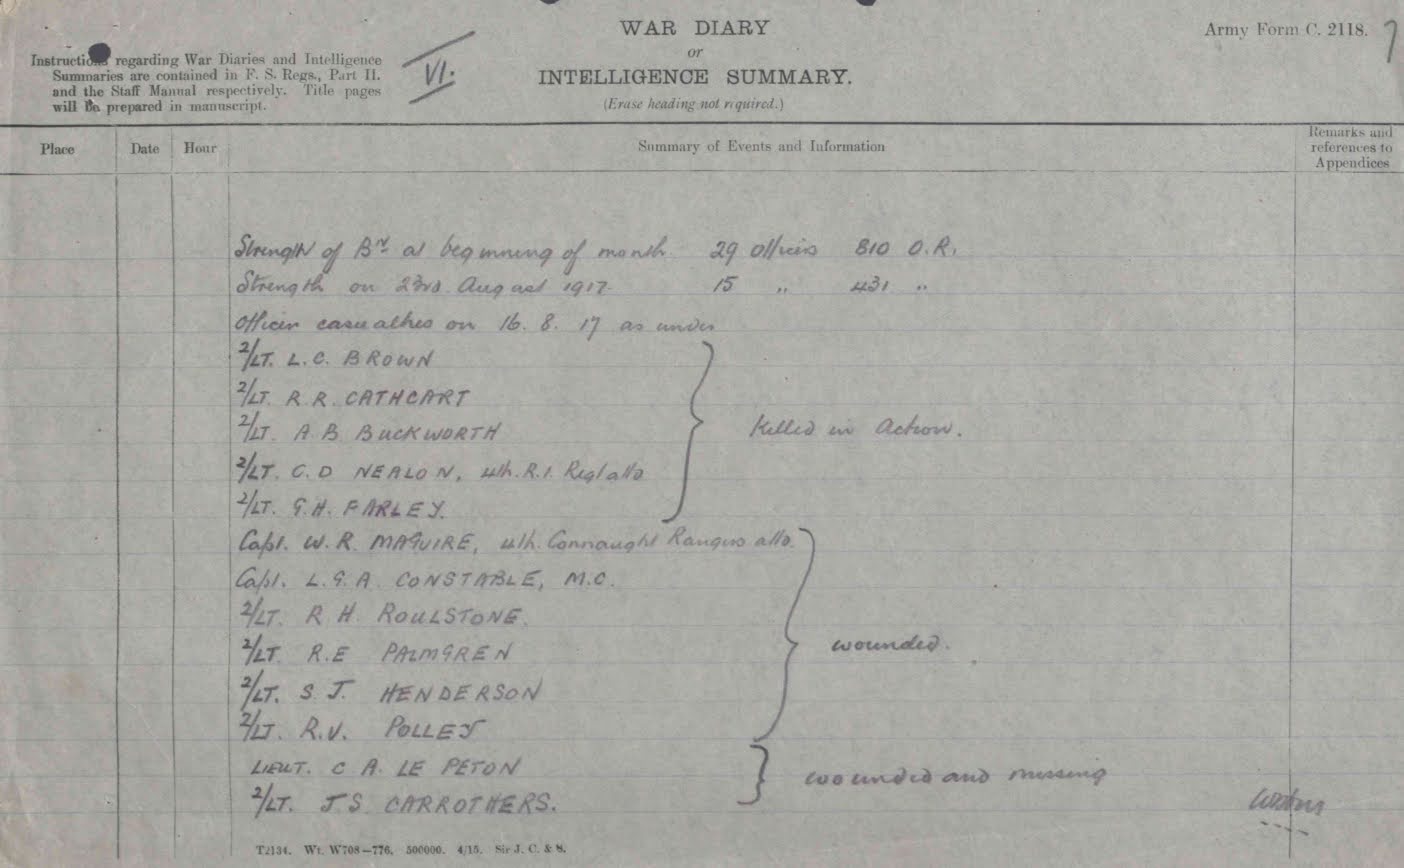 WAR DIARY
or
INTELLIGENCE SUMMARY.
(Erase heading not required.)
Army Form C. 2118.
7
Instructions regarding War Diaries and Intelligence
Summaries are contained in F. S. Regs., Part II.
and the Staff Manual respectively. Title pages
will be prepared in manuscript.
VI.
Place Date Hour Summary of Events and Information Remarks and references to Appendices
Strength of Bn at beginning of month. 29 Officers 810 O.R.
Strength on 23rd August 1917 15 " 431 "
Officer casualties on 16. 8. 17 as under
2/LT. L.C. BROWN
2/LT. R.R. CATHCART
2/LT. A.B BUCKWORTH
Killed in Action.
2/LT. C.D NEALON, 4th. R.I. Regt atto
2/LT. G.H. FARLEY.
Capt. W.R. MAGUIRE, 4th. Connaught Rangers atto.
Capt. L.G.A. CONSTABLE, M.C.
2/LT. R H ROULSTONE.
2/LT. R.E PALMGREN
wounded.
2/LT. S J. HENDERSON
2/LT. R.V. POLLEY
LIEUT. C A. LE PETON
wounded and missing
2/LT. J.S. CARROTHERS.
T2134. Wt. W708—776. 500000. 4/15. Sir J. C. & S.